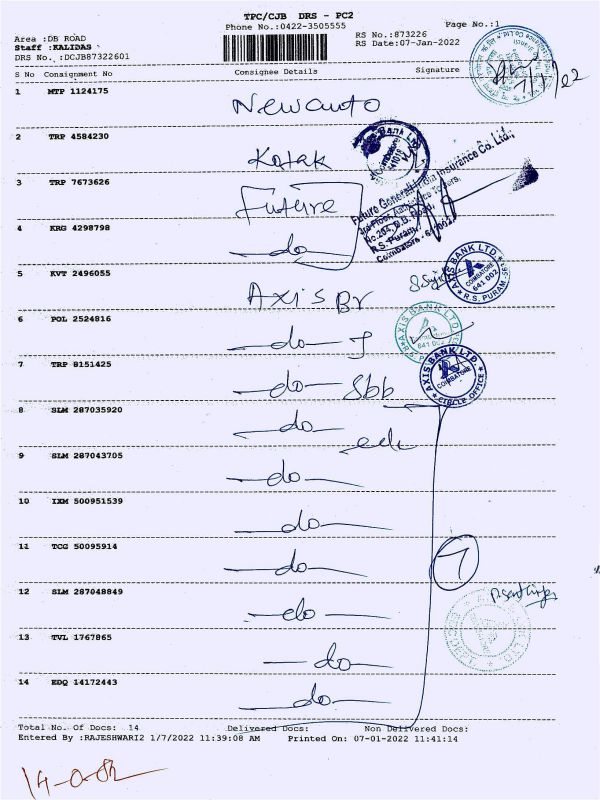 TPC/CJB DRS - PC2
Phone No.:0422-3505555
Page No.:1
Area :DB ROAD
Staff :KALIDAS
DRS No. :DCJB87322601
RS No.:873226
RS Date:07-Jan-2022
S No Consignment No Consignee Details Signature
1 MTP 1124175 Newauto
2 TRP 4584230 Kotak
3 TRP 7673626 Future
4 KRG 4298798 -do-
5 KVT 2496055 Axis Br
6 POL 2524816 -do-
7 TRP 8151425 -do- Sbb
8 SLM 287035920 -do-
9 SLM 287043705 -do-
10 IXM 500951539 -do-
11 TCG 50095914 -do-
12 SLM 287048849 -do-
13 TVL 1767865 -do-
14 EDQ 14172443 -do-
7
Future Generali India Insurance Co. Ltd.,
R.S. Puram,
AXIS BANK LTD.
COIMBATORE
641 002
R.S. PURAM
AXIS BANK LTD
641 002
AXIS BANK LTD.
COIMBATORE
CIRCLE OFFICE
Total No. Of Docs: 14 Delivered Docs: Non Delivered Docs:
Entered By :RAJESHWARI2 1/7/2022 11:39:08 AM Printed On: 07-01-2022 11:41:14